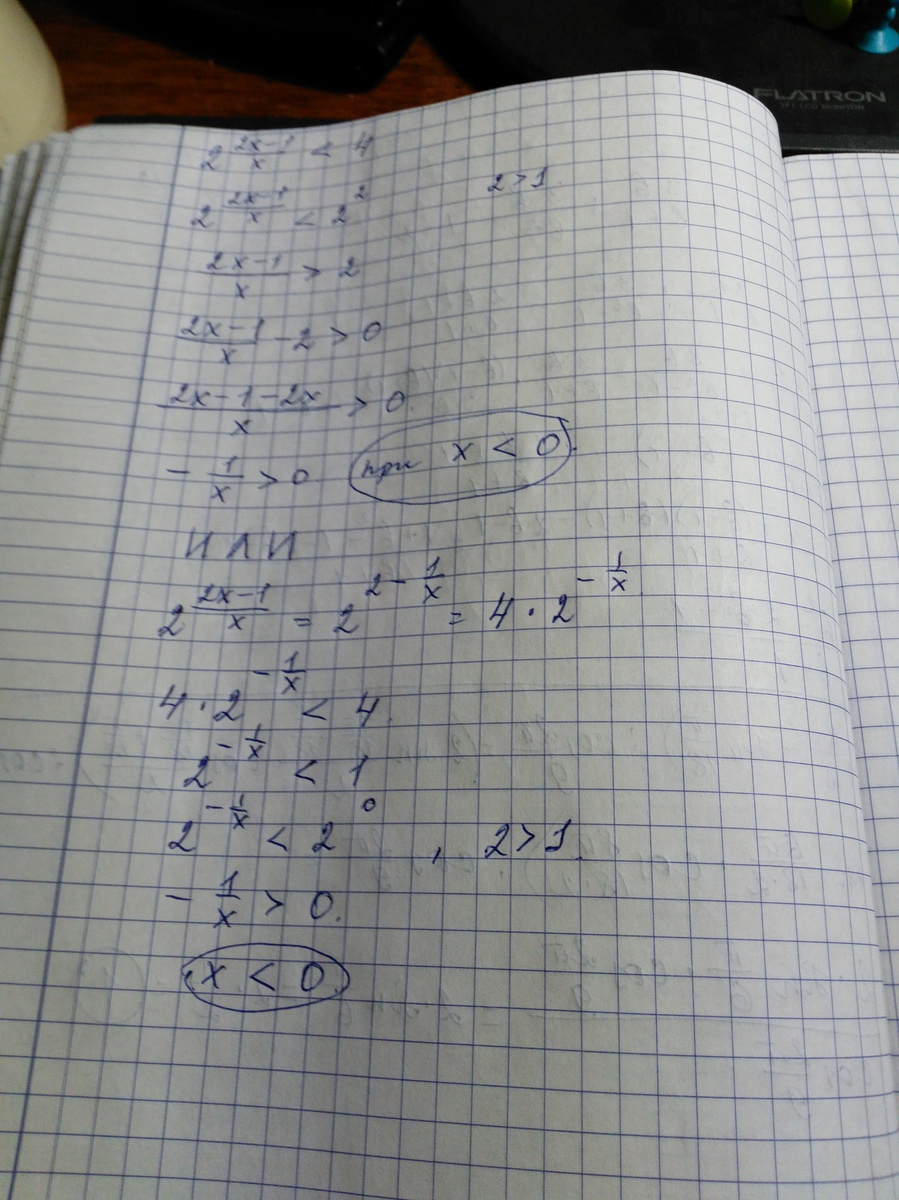 FLATRON
2^((2x-1)/x) < 4
2^((2x-1)/x) < 2^2     2>1
(2x-1)/x > 2
(2x-1)/x - 2 > 0
(2x-1-2x)/x > 0
-1/x > 0   при x < 0
ИЛИ
2^((2x-1)/x) = 2^(2-1/x) = 4 · 2^(-1/x)
4 · 2^(-1/x) < 4
2^(-1/x) < 1
2^(-1/x) < 2^0 , 2>1
-1/x > 0.
x < 0